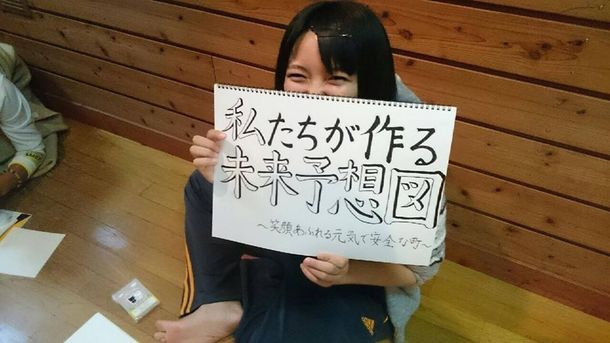 私たちが作る
未来予想図
～笑顔あふれる元気で安全な町～